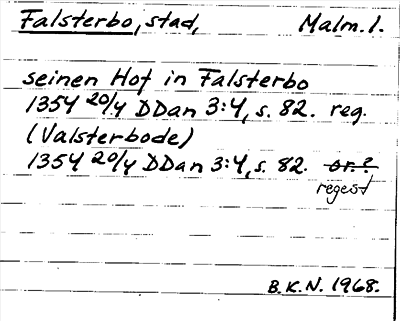 Falsterbo, stad, Malm. l.
seinen Hof in Falsterbo
1354 20/4 DDan 3:4, s. 82. reg.
(Valsterbode)
1354 20/4 DDan 3:4, s. 82. or.?
regest
B.K.N. 1968.